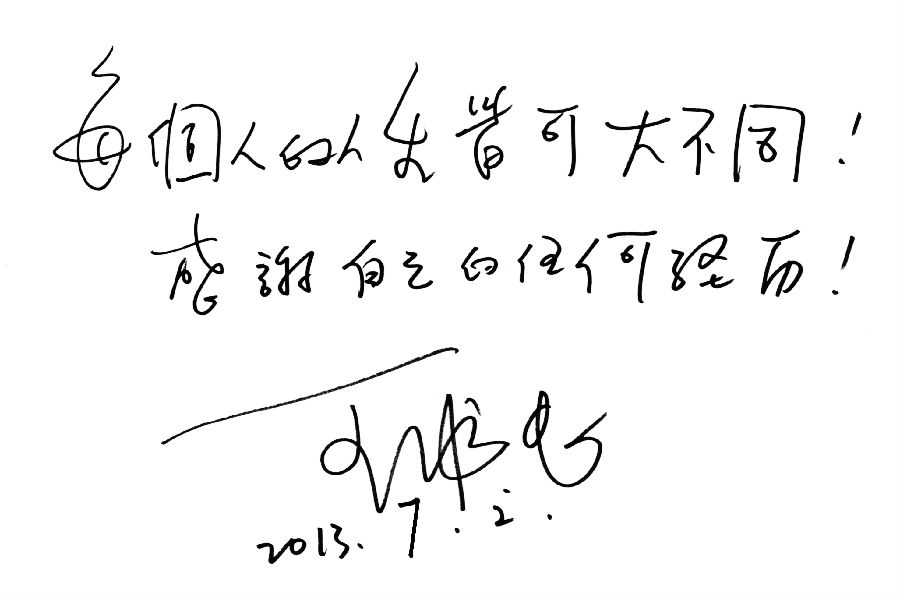 每個人的人生皆可大不同!
感謝自己的任何經歷!
2013.7.2.